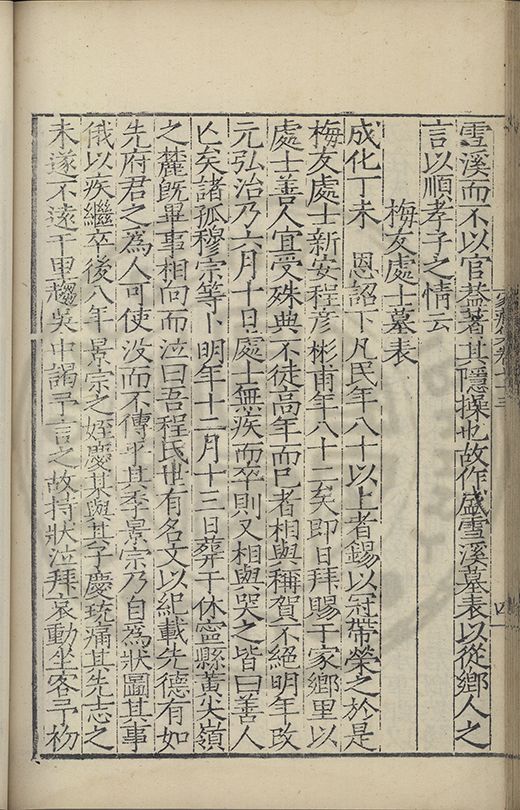 雪溪而不以官葢著其隱操也故作盛雪溪墓表以從鄉人之
言以順孝子之情云
梅友處士墓表
成化丁未 恩詔下凡民年八十以上者錫以冠帶榮之於是
梅友處士新安程彦彬甫年八十二矣即日拜賜于家鄉里以
處士善人宜受殊典不徒高年而已者相與稱賀不絕明年改
元弘治乃六月十日處士無疾而卒則又相與哭之皆曰善人
亾矣諸孤穆宗等卜明年十二月十三日葬于休寧縣黃尖嶺
之麓旣畢事相向而泣曰吾程氏世有名文以紀載先德有如
先府君之爲人可使没而不傳乎其季景宗乃自為狀圖其事
俄以疾繼卒後八年景宗之姪慶某與其子慶珫痛其先志之
未遂不遠千里趨吳中謁予言之故持狀泣拜哀動坐客予初